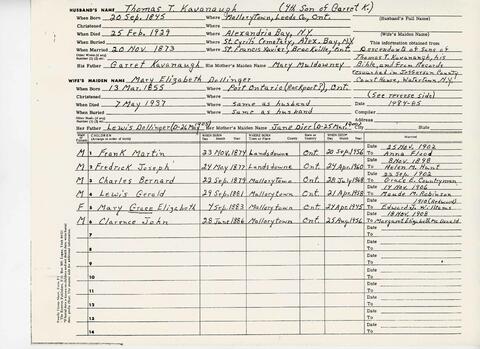 HUSBAND'S NAME Thomas T. Kavanaugh (4th Son of Garret K.)
When Born 20 Sep. 1845 Where Mallorytown, Leeds Co., Ont. (Husband's Full Name)
Christened Where
When Died 25 Feb. 1929 Where Alexandria Bay, N.Y. (Wife's Maiden Name)
When Buried Where St. Cyril's Cemetery, Alex. Bay, N.Y. This information obtained from
When Married 20 Nov. 1873 Where St. Francis Xavier, Brockville, Ont. Descendants of Sons of
His Father Garret Kavanaugh His Mother's Maiden Name Mary Muldowney Thomas T. Kavanaugh, his
Bible, and from Records
WIFE'S MAIDEN NAME Mary Elizabeth Dollinger researched in Jefferson County
When Born 13 Mar. 1855 Where Port Ontario (Rockport?), Ont. Court House, Watertown, N.Y.
Christened Where (See reverse side)
When Died 7 May 1937 Where Same as husband Date 1984-85
When Buried Where Same as husband
Her Father Lewis Dollinger Her Mother's Maiden Name Jane Dier City State
CHILDREN Married
M 1 Frank Martin 23 Nov. 1874 Landsdowne Ont. 20 Sep. 1956 Date 25 Nov. 1902 To Anna Flood
M 2 Fredrick Joseph 24 May 1877 Landsdowne Ont. 24 Apr. 1960 Date 8 Nov. 1898 To Helen M. Hunt
M 3 Charles Bernard 22 Sep. 1879 Mallorytown Ont. 28 July 1968 Date 22 Sep. 1902 To Grace E. Countryman
M 4 Lewis Gerald 29 Sep. 1881 Mallorytown Ont. 21 Apr. 1948 Date 14 Nov. 1906 To Maude M. Robinson
F 5 Mary Grace Elizabeth 4 Sep. 1883 Mallorytown Ont. 24 Apr. 1945 Date 1910 To Edward J. Williams
M 6 Clarence John 28 June 1886 Mallorytown Ont. 25 Aug. 1956 Date 18 Nov. 1908 To Margaret Elizabeth McDonald
7 Date To
8 Date To
9 Date To
10 Date To
11 Date To
12 Date To
13 Date To
14 Date To